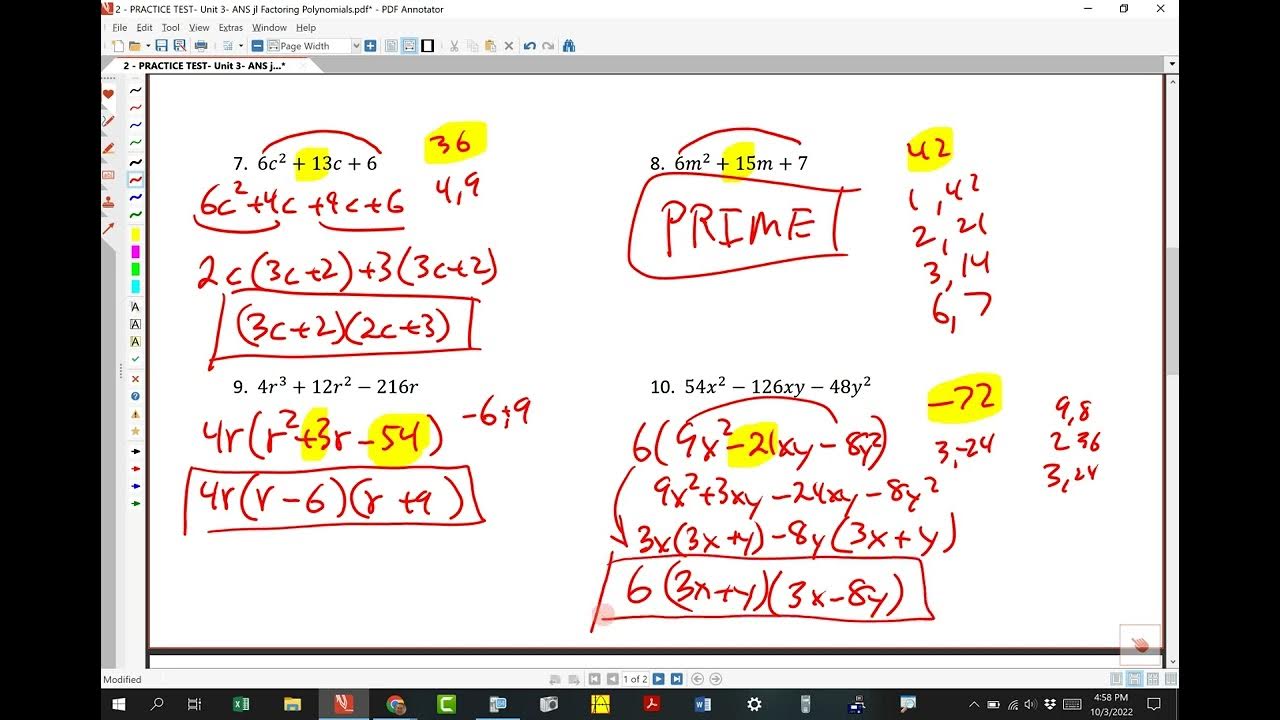 2 - PRACTICE TEST- Unit 3- ANS jl Factoring Polynomials.pdf* - PDF Annotator
File Edit Tool View Extras Window Help
Page Width
2 - PRACTICE TEST- Unit 3- ANS j...*
7. 6c² + 13c + 6
36
4,9
6c²+4c+9c+6
2c(3c+2)+3(3c+2)
(3c+2)(2c+3)
8. 6m² + 15m + 7
PRIME
42
1,42
2,21
3,14
6,7
9. 4r³ + 12r² − 216r
4r(r²+3r−54)
-6,+9
4r(r−6)(r+9)
10. 54x² − 126xy − 48y²
-72
6(9x²−21xy−8y²)
3,-24
9,8
2 36
3,24
9x²+3xy−24xy−8y²
3x(3x+y)−8y(3x+y)
6(3x+y)(3x−8y)
Modified
1 of 2
4:58 PM
10/3/2022